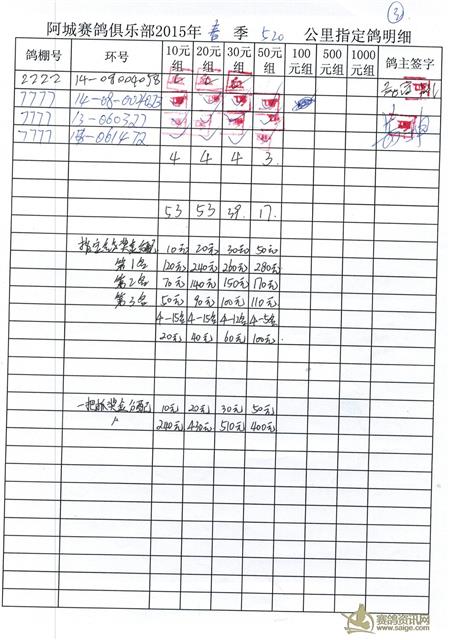 ③
阿城赛鸽俱乐部2015年春季520公里指定鸽明细
鸽棚号 环号 10元组 20元组 30元组 50元组 100元组 500元组 1000元组 鸽主签字
2222 14-08004098
7777 14-08-004023
7777 13-060327
7777 13-061472
4 4 4 3
53 53 39. 17.
指定鸽奖金分配 10元 20元 30元 50元
第1名 120元 240元 260元 280元
第2名 70元 140元 150元 170元
第3名 50元 90元 100元 110元
4-15名 4-15名 4-12名 4-5名
20元 40元 60元 100元
一把抓奖金分配 10元 20元 30元 50元
240元 430元 510元 400元
赛鸽资讯网
www.saige.com